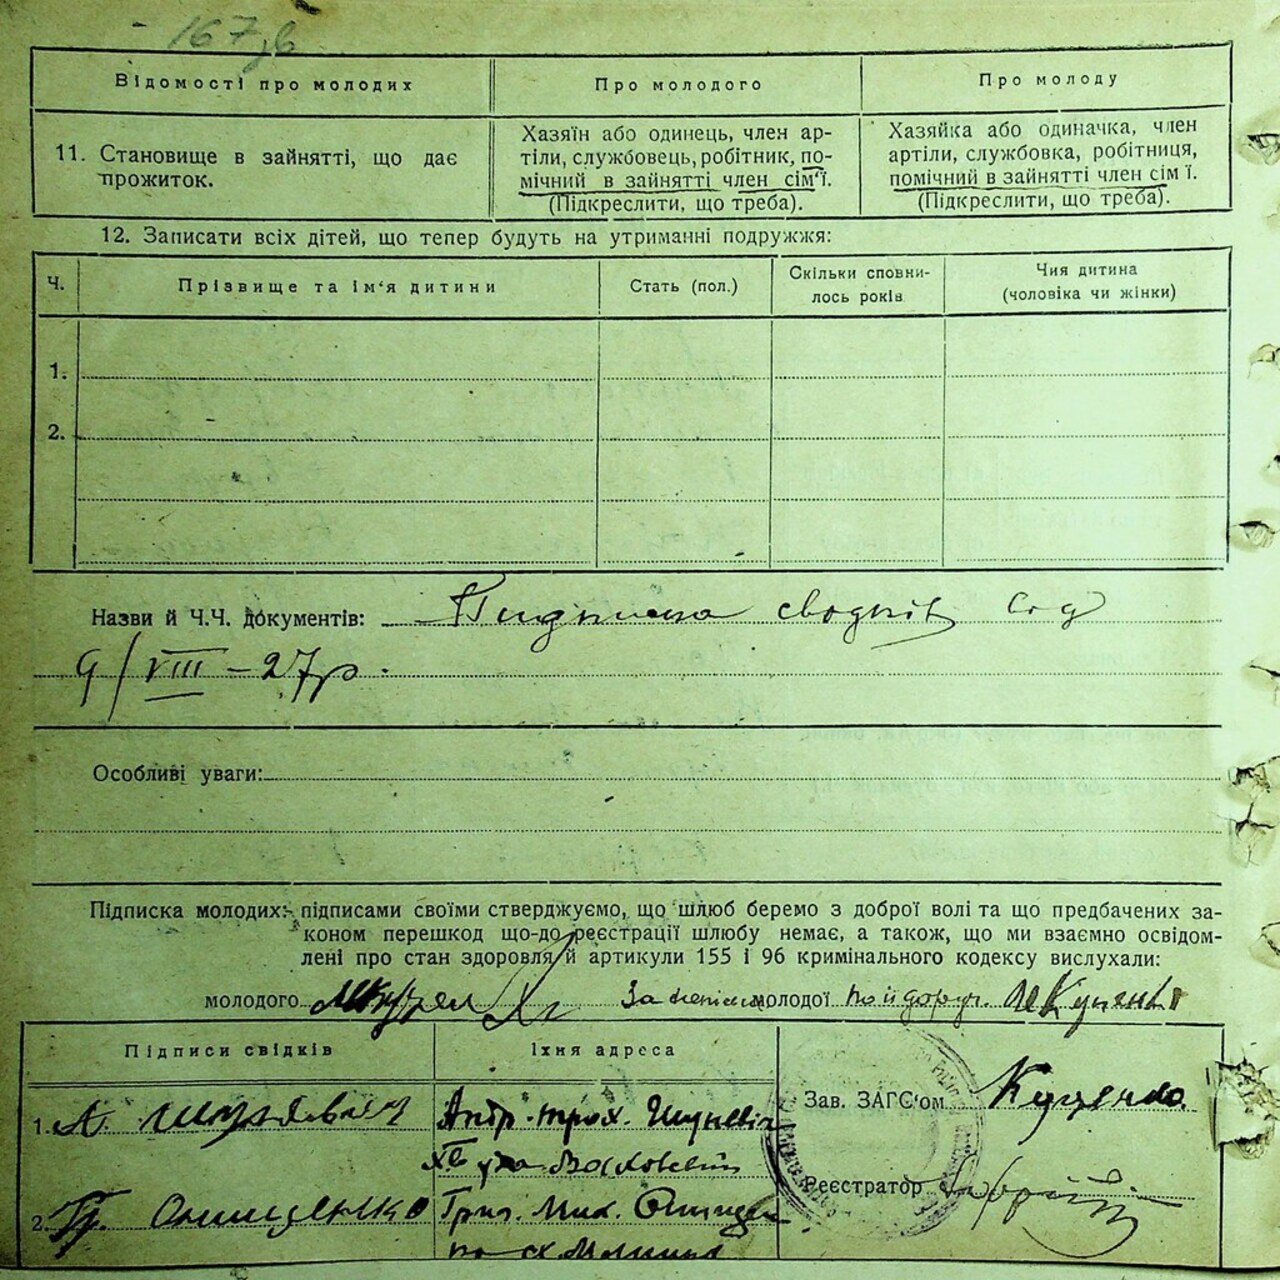 167 зв
Відомості про молодих
Про молодого
Про молоду
11. Становище в зайнятті, що дає
прожиток.
Хазяїн або одинець, член ар-
тіли, службовець, робітник, по-
мічний в зайнятті член сім‘ї.
(Підкреслити, що треба).
Хазяйка або одиначка, член
артіли, службовка, робітниця,
помічний в зайнятті член сім ї.
(Підкреслити, що треба).
12. Записати всіх дітей, що тепер будуть на утриманні подружжя:
Ч.
Прізвище та ім‘я дитини
Стать (пол.)
Скільки сповни-
лось років
Чия дитина
(чоловіка чи жінки)
1.
2.
Назви й Ч.Ч. документів: сводків
9/VIII – 27 р.
Особливі уваги:
Підписка молодих: підписами своїми стверджуємо, що шлюб беремо з доброї волі та що предбачених за-
коном перешкод що-до реєстрації шлюбу немає, а також, що ми взаємно освідом-
лені про стан здоровля й артикули 155 і 96 кримінального кодексу вислухали:
молодого молодої
Підписи свідків
Їхня адреса
1. А.
Андр. Трох.
2. Гр. Онищенко
Григ. Мик.
Зав. ЗАГС‘ом Куценко.
Реєстратор